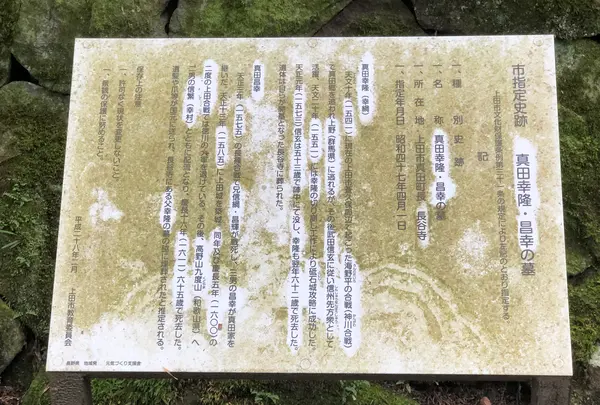 市指定史跡 真田幸隆・昌幸の墓
上田市文化財保護条例第三十一条の規定により左記のとおり指定する
記
一 種別 史跡
一 名称 真田幸隆・昌幸の墓
一 所在地 上田市真田町長 長谷寺
一 指定年月日 昭和四十七年四月一日
真田幸隆(幸綱)
天文十年(一五四一)
海野平の合戦(神川合戦)
で真田郷を追われ上野(群馬県)に逃れるが、その後武田信玄に従い信州先方衆として
活躍、天文二十年(一五五一)には幸隆の
工作により砥石城攻略に成功した。
天正元年(一五七三)信玄は五十三歳で陣中にて没し、幸隆も翌年六十二歳で死去した。
遺体は自らが開基となった長谷寺に葬られた。
真田昌幸
天正三年(一五七五)の長篠合戦で兄信綱・昌輝が戦死し、三男の昌幸が真田家を
継いだ。天正十三年(一五八五)に上田城を築城、同年及び慶長五年(一六〇〇)の
二度の上田合戦で徳川の大軍を退けている。その後、高野山九度山(和歌山県)へ
二男の信繁(幸村)とともに配流となり、慶長十六年(一六一一)六十五歳で死去した。
ある父幸隆の墓の隣に埋葬されたと推定される。
保存上の注意
一 許可なく現状を変更しないこと。
一 史跡の保護に努めること。
平成二十八年二月
上田市教育委員会
長野県 地域発 元気づくり支援金